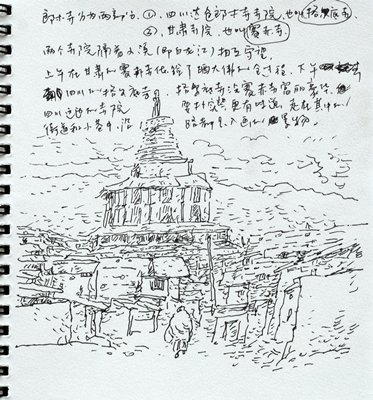 郎木寺分为两部分.①,四川达仓郎木寺寺院,也叫格尔底寺
②,甘肃寺院,也叫赛赤寺
两个寺院隔着小溪(即白龙江)相互守望.
上午在甘肃的赛赤寺体验了晒大佛的全过程.下午
四川的格尔底寺.格尔底寺没赛赤寺富的豪华,
四川这边的寺院 要朴实些更有味道 走在其中的
街道和小巷中,沿 路都是入画的景物.